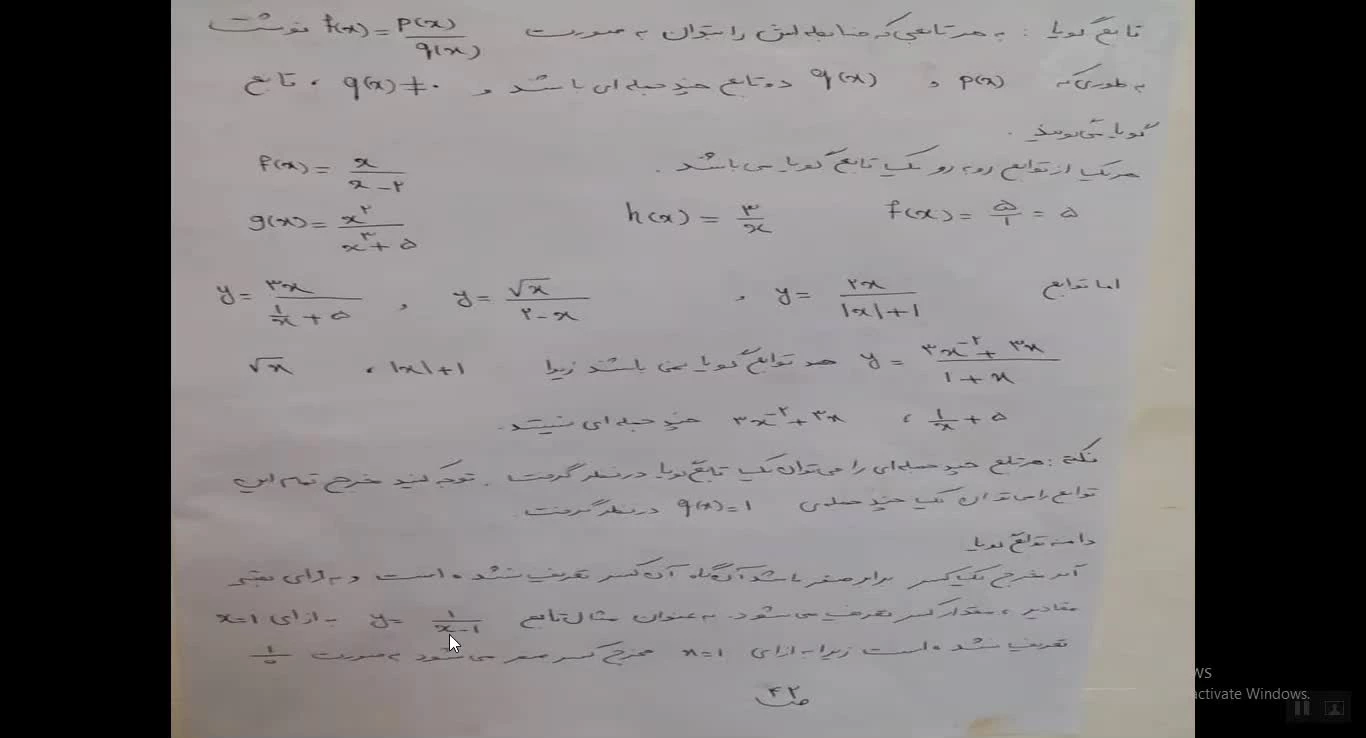 تابع گویا : به هر تابعی که ضابطه اش را بتوان به صورت f(x) = P(x)/q(x) نوشت
به طوری که P(x) و q(x) دو تابع چند جمله ای باشد و q(x) ≠ ۰ ، تابع
گویا می گویند .
هر یک از توابع روبه رو یک تابع گویا می باشد . f(x) = x/(x-۲)
f(x) = ۵/۱ = ۵ h(x) = ۳/x g(x) = x^۲/(x^۳+۵)
اما توابع y = ۲x/(|x|+۱) , y = √x/(۲-x) , y = ۳x/(۱/x + ۵)
y = (۳x^-۲ + ۳x)/(۱+x) توابع گویا نمی باشند زیرا |x|+۱ ، √x
۱/x + ۵ ، ۳x^-۲ + ۳x چند جمله ای نیستند .
نکته : هر تابع چند جمله ای را می توان یک تابع گویا در نظر گرفت . توجه کنید خرج تمام این
توابع را می توان یک چند جمله ی q(x) = ۱ در نظر گرفت .
دامنه توابع گویا
اگر خرج یک کسر برابر صفر باشد آن گاه آن کسر تعریف نشده است و به ازای بقیه
مقادیر ، مقدار کسر تعریف می شود . به عنوان مثال تابع y = ۱/(x-۱) به ازای x=۱
تعریف نشده است زیرا به ازای x=۱ مخرج کسر صفر می شود به صورت ۱/۰
ص ۴۲
WS
activate Windows.